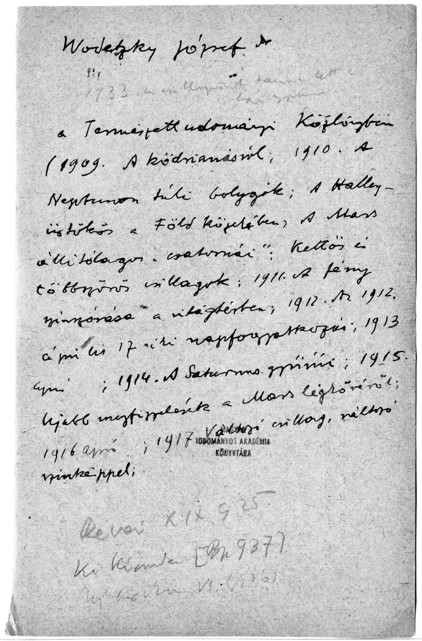 Wodetzky József
1933
a Természettudományi Közlönyben
(1909. A ködrianásról; 1910. A
Neptunon túli bolygók; A Halley-
üstökös a Föld közelében; A Mars
állitólagos „csatornái"; Kettős és
többszörös csillagok; 1911. A fény
szinszórása a világtérben; 1912. Az 1912.
április 17-iki napfogyatkozás; 1913
apró ; 1914. A Saturnus gyűrűi; 1915.
Ujabb megfigyelések a Mars légköréről;
1916 apró ; 1917 Változó csillag, változó
TUDOMÁNYOS AKADÉMIA
KÖNYVTÁRA
szinképpel;
Révai XIX. 925
Ki Kicsoda [Bp 937]